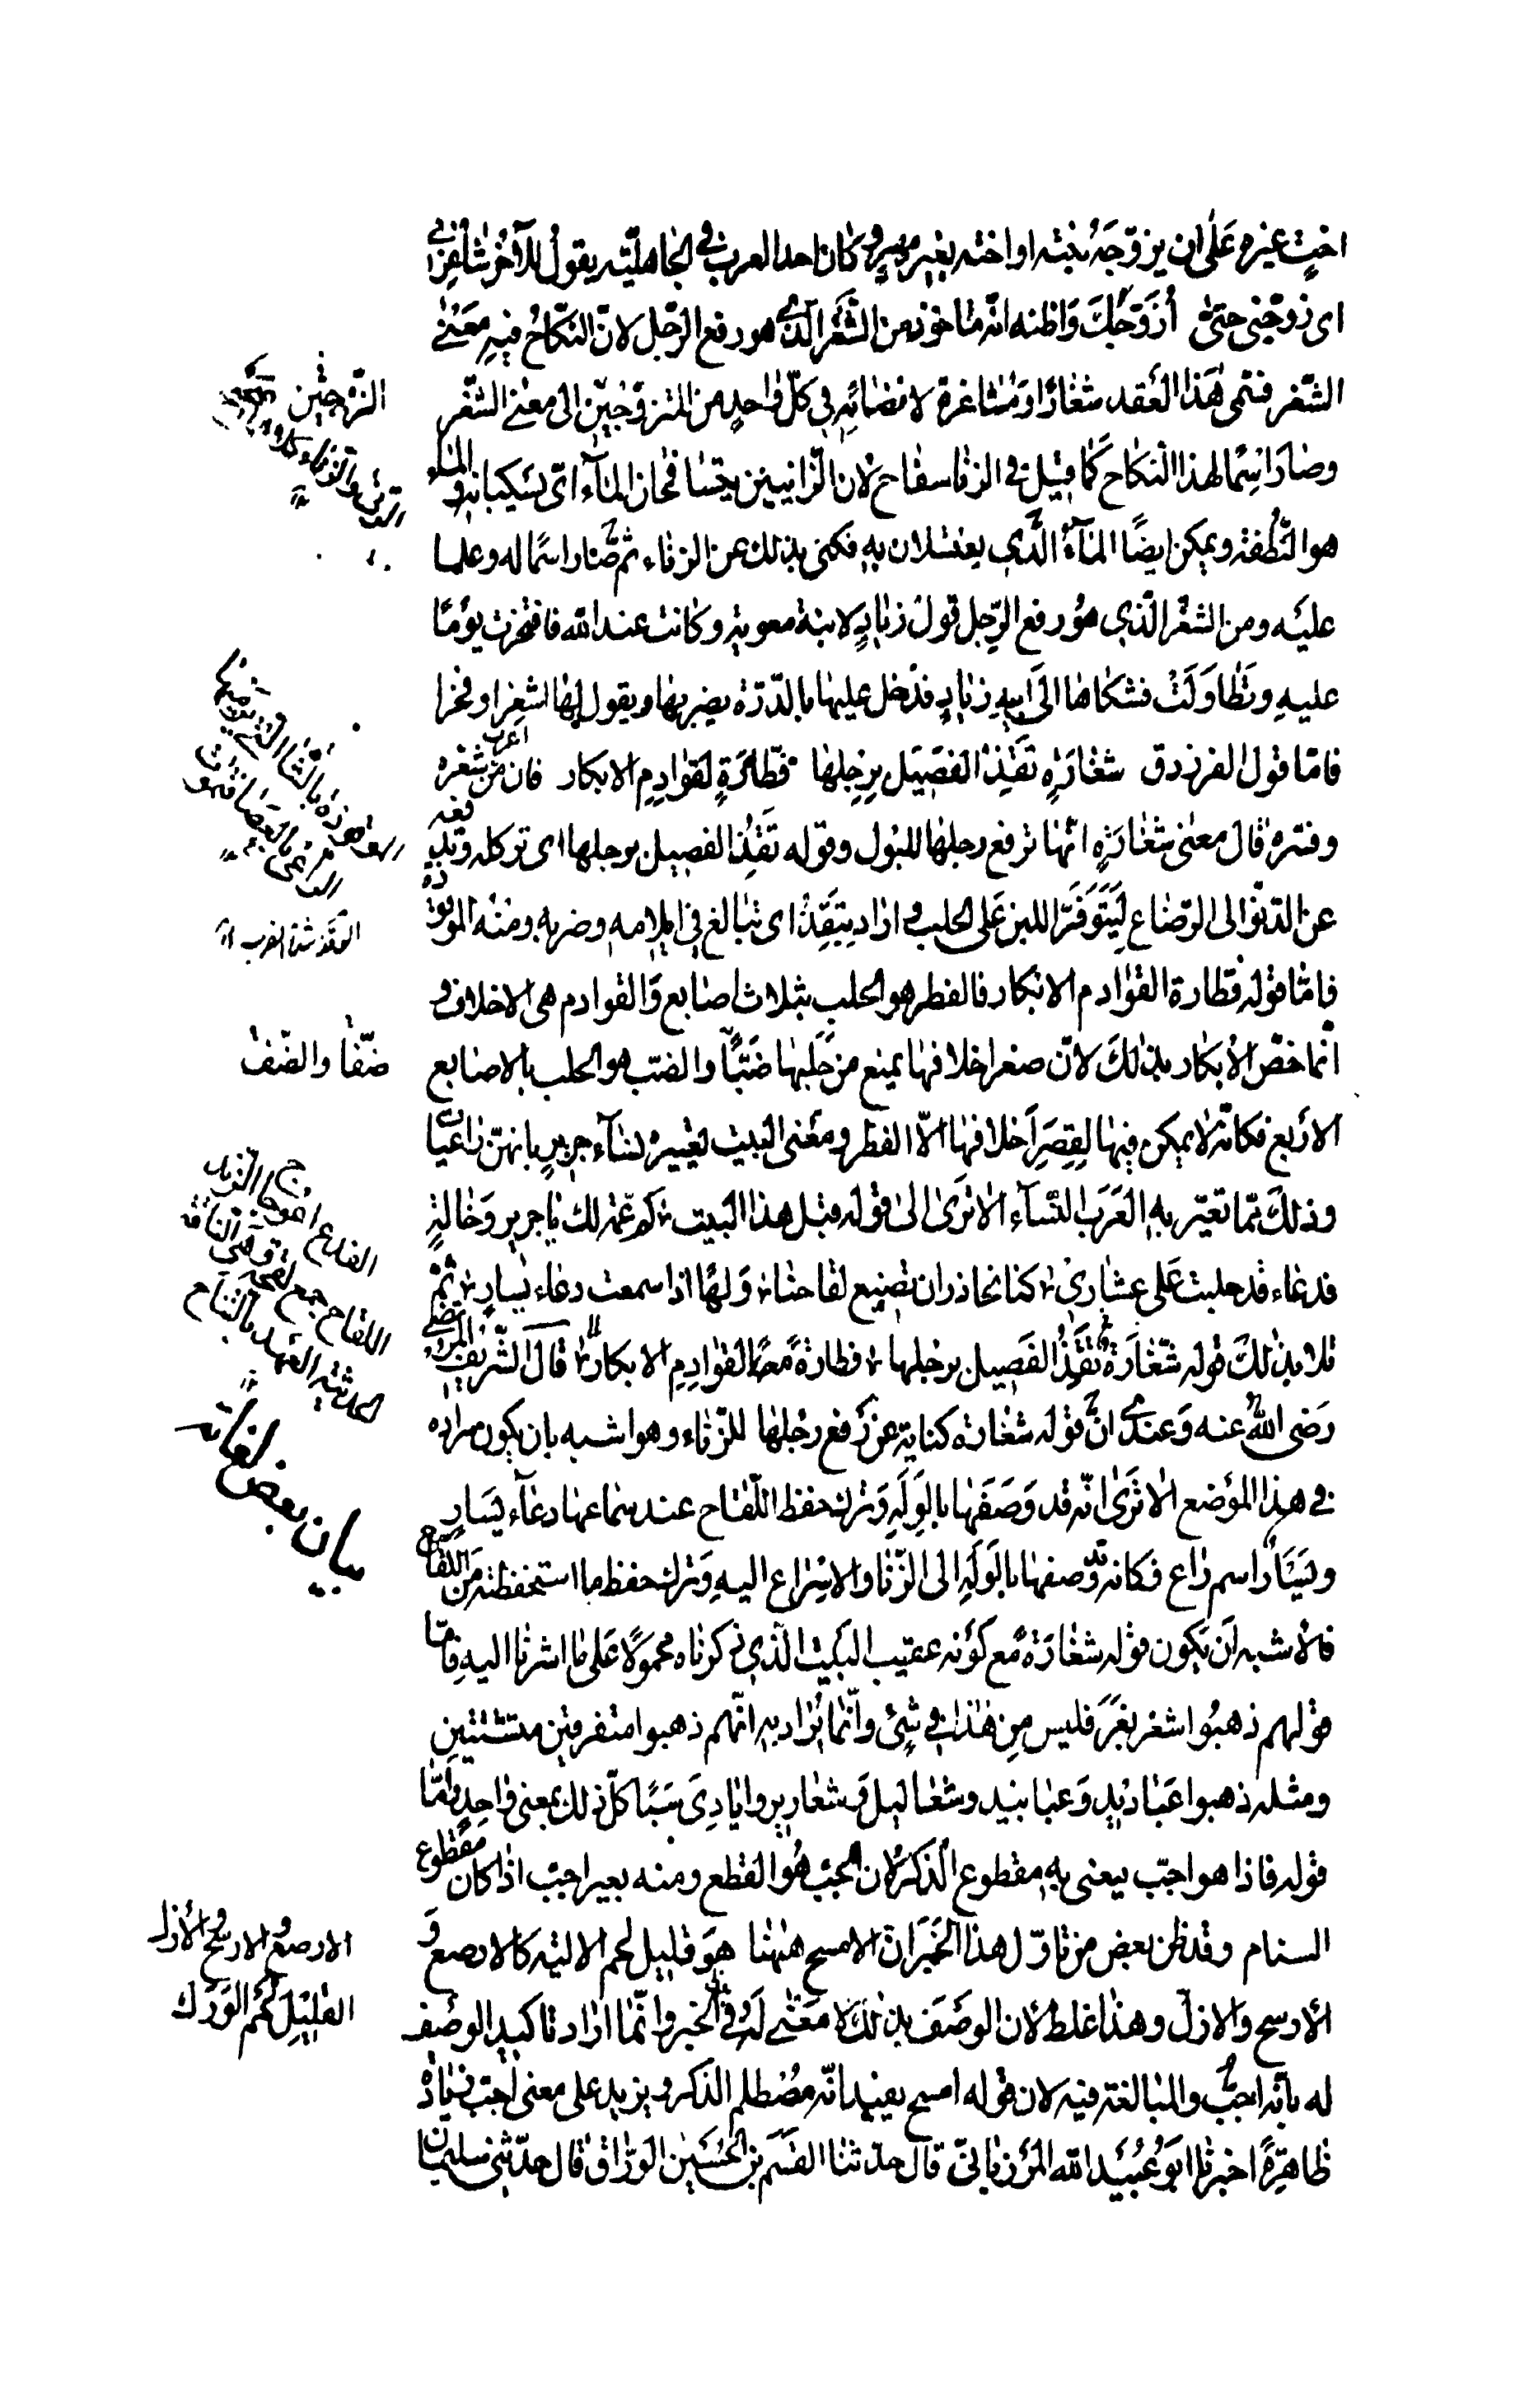 اخت غيره على ان يزوّجه بنته او اخته بغير مهر وكان احد العرب في الجاهليّة يقول للآخر شاغرني
اى زوّجنى حتى أزوّجك واظنه انّه مأخوذ من الشغر الذى هو رفع الرّجل لانّ النكاح فيه معنى
الشّغر فسمى هذا العقد شغارًا ومشاغرة لافضائه في كلّ واحد من المتزوّجين الى معنى الشّغر
وصار اسمًا لهذا النكاح كما قيل في الزنا سفاح لان الزانيين يتسافحان المآء اى يسكبانه والماء
هو النّطفة ويمكن ايضًا المآء الّذي يغتسلان به فكنى بذلك عن الزناء ثم صار اسمًا له وعلما
عليه ومن الشغر الّذي هو رفع الرّجل قول زياد لابنة معوية وكانت عند الله فافتخرت يومًا
عليه وتطاولت فشكاها الى ابيه زياد فدخل عليها بالدّرّة يضربها ويقول لها اشغرا وفخرا
فامّا قول الفرزدق شغارة تقذ الفصيل برجلها فطّارة لقوادم الابكار فان من اعرب شعره
وفسّره قال معنى شغارة انّها ترفع رجلها للبول وقوله تقذ الفصيل برجلها اى تركله وتدفعه
عن الدّنوّ الى الرّضاع ليتوفّر اللبن على الحلب و اراد بتقذ اى تبالغ في ايلامه وضربه ومنه الموقوذة
فامّا قوله فطارة القوادم الابكار فالفطر هو الحلب بثلاث اصابع والقوادم هى الاخلاف و
انّما خصّ الأبكار بذلك لانّ صغر اخلافها يمنع من حلبها ضبًّا والضبّ هو الحلب بالاصابع
الاربع فكانّه لا يمكن فيها لقصر اخلافها الّا الفطر ومعنى البيت تعييره نساء جرير بانهنّ راعيات
وذلك ممّا تعيّر به العرب النّسآء الا ترى الى قوله قبل هذا البيت كم عمّة لك يا جرير وخالة
فدعاء قد حلبت على عشاري كنا نحاذر ان تضيع لقاحنا ولها اذا سمعت دعاء يسار ثم
تلا بذلك قوله شغارة تقذ الفصيل برجلها فطارة لقوادم الابكار قال الشّريف المرتضى
رضى الله عنه وعندى انّ قوله شغارة كناية عن رفع رجلها للزّناء وهو اشبه بان يكون مراده
في هذا الموضع الا ترى انّه قد وصفها بالوله وترك حفظ اللّقاح عند سماعها دعآء يسار
ويسار اسم راع فكانه قد وصفها بالوله الى الزّنا والاسراع اليه وترك حفظ ما استحفظته من اللقاح
فالاشبه ان يكون قوله شغارة مع كونه عقيب البيت الّذي ذكرناه محمولا على ما اشرنا اليه فامّا
قولهم ذهبوا شغر بغر فليس من هذا في شئ وانّما يراد به انّهم ذهبوا متفرقين متشتتين
ومثله ذهبوا عباديد وعبابيد وشعاليل و شعارير وايادى سبا كلّ ذلك بمعنى واحد وامّا
قوله فاذا هو اجبّ يعنى به مقطوع الذكر لان الجبّ هو القطع ومنه بعير اجبّ اذا كان مقطوع
السنام وقد ظن بعض من تاوّل هذا الخبر ان الامسح ههنا هو قليل لحم الالية كالارصع و
الأرسح والازلّ وهذا غلط لان الوصف بذلك لا معنى له في الخبر وانّما اراد تاكيد الوصف
له بانّه اجبّ والمبالغة فيه لان قوله امسح يفيد انّه مصطلم الذكر و يزيد على معنى اجبّ زيادة
ظاهرة اخبرنا ابو عبيد الله المرزبانىّ قال حدّثنا القسم بن الحسين الورّاق قال حدّثني سليمان
الزّوجين
ضفّا والضّفّ
بيان بعض لغاته
الارصع والارسح والأزل
القليل لحم الورك